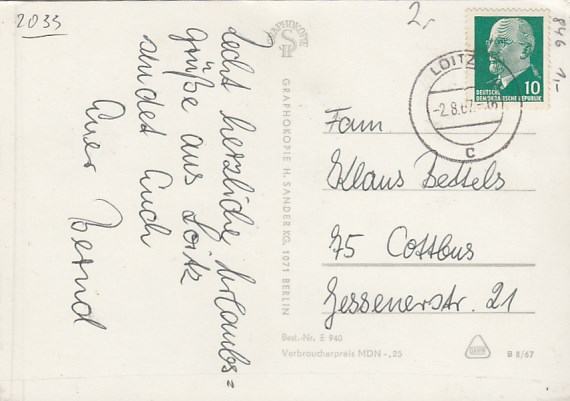 2033
2,-
846 1,-
Recht herzliche Urlaubs=
grüße aus Loitz
sendet Euch
Euer Bernd
GRAPHOKOPIE
GRAPHOKOPIE H. SANDER KG. 1071 BERLIN
LOITZ
-2.8.67.-
c
DEUTSCHE
DEMOKRATISCHE REPUBLIK
10
Fam.
Klaus Bettels
75 Cottbus
Gessenerstr. 21
Best.-Nr. E 940
Verbraucherpreis MDN -,25
B 8/67